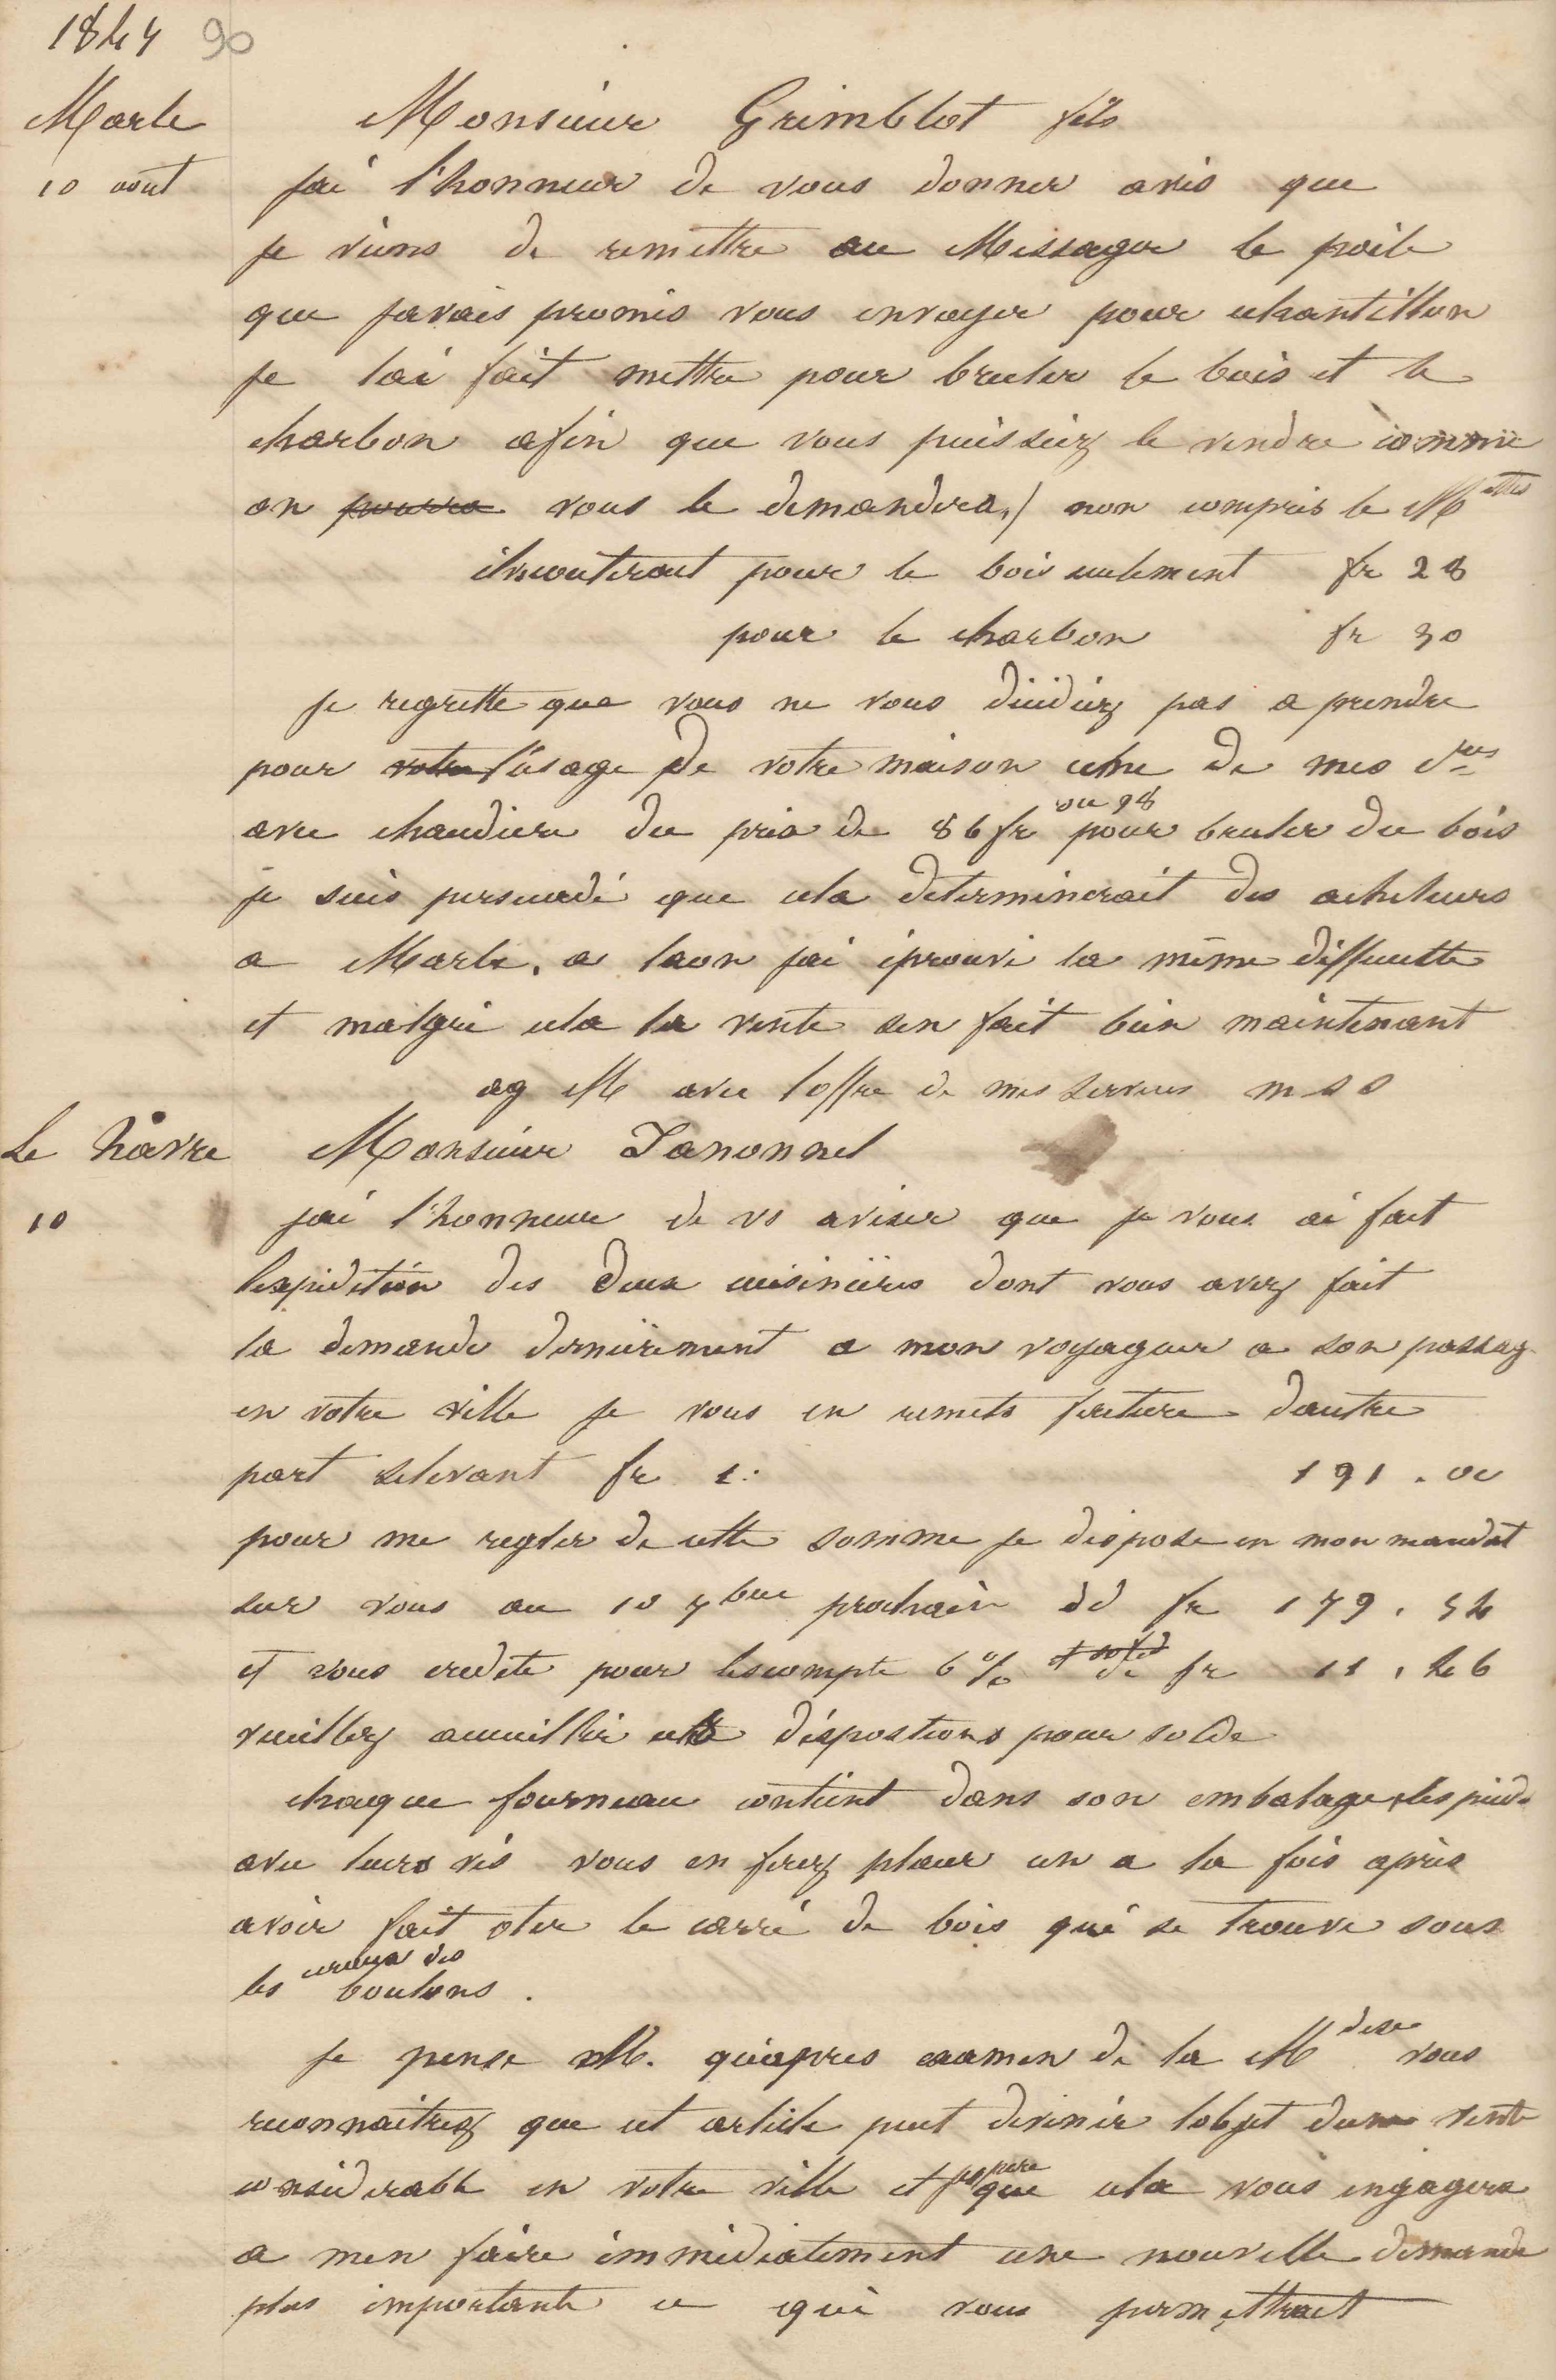 1844 90
Marle
Monsieur Grimblot fils
10 aout
jai l'honneur de vous donner avis que
je viens de remettre au Messager le poile
que javais promis vous envoyer pour echantillon
je lai fait mettre pour bruler le bois et le
charbon afin que vous puissiez le vendre comme
on pourra vous le demandera, / non compris le M
ils couteront pour le bois seulement fr 28
pour le charbon fr 30
je regrette que vous ne vous décidiez pas a prendre
pour votre l'usage de votre maison une de mes
avec chaudiere du prix de 86 fr ou 98 pour bruler du bois
je suis persuadé que cela determinerait des acheteurs
a Marle. a laon jai éprouvé la même difficulté
et malgré cela la vente sen fait bien maintenant
ag M avec loffre de mes services m s s
Le hâvre
Monsieur Janonnel
10
jai l'honneur de vs aviser que je vous ai fait
lexpédition des deux cuisinières dont vous avez fait
la demande dernièrement a mon voyageur a son passag
en votre ville je vous en remets facture dautre
part selevant fr 191.00
pour me regler de cette somme je dispose en mon mandat
sur vous au 10 7bre prochain dd fr 179.54
et vous credite pour lescompte 6% de fr 11.46
veuillez accueillir cette dispostions pour solde
chaque fourneau contient dans son embalage les pieds
avec leurs vis vous en ferez placer un a la fois après
avoir fait oter le carré de bois qui se trouve sous
les ecroux des boulons.
je pense M. quapres examen de la Mdise vous
reconnaitrez que cet article peut devenir lobjet dune vente
considerable en votre ville et jespere que cela vous engagera
a men faire immédiatement une nouvelle demande
plus importante ce qui vous permettrait